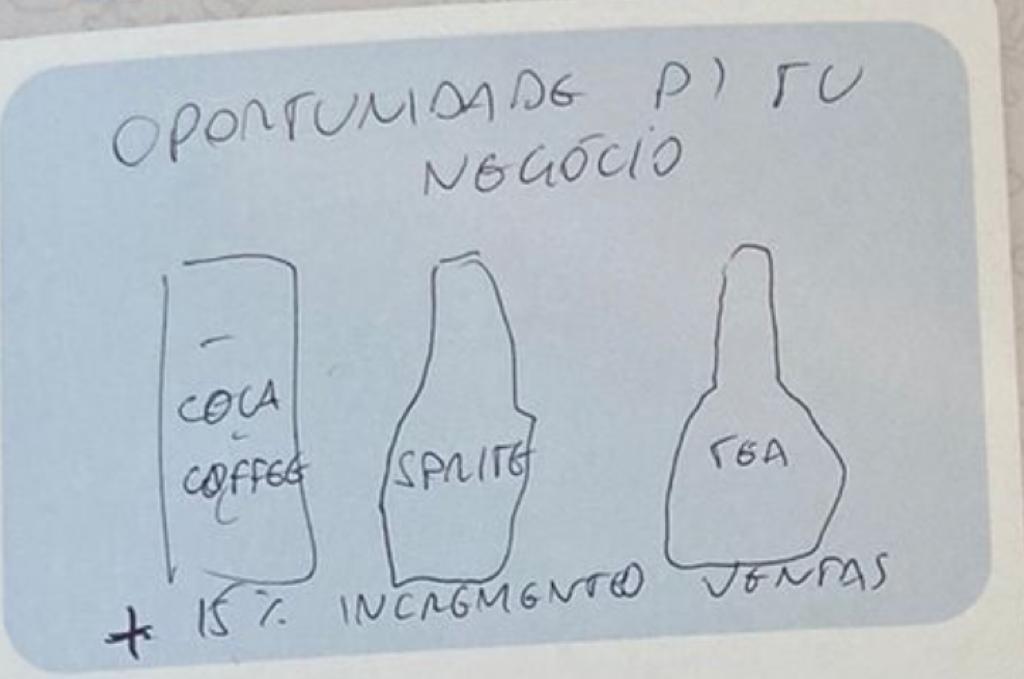 OPORTUNIDADE P) TU
NEGÓCIO
COCA
COFFEE
SPRITE
TEA
+ 15% INCREMENTO VENTAS